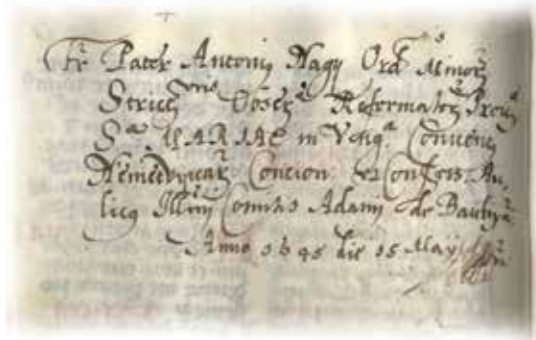 Fr Pater Antoni9 Nagy Ord is Minorz
Strictz ris Obserz Reformatorz Prou
Sa MARIAE in Vng a Convent9
Nemetvivarz Concion et Confess. Au-
lic9 Illmi Comitis Adami de Bauthja
Anno 1645 die 15 Maij